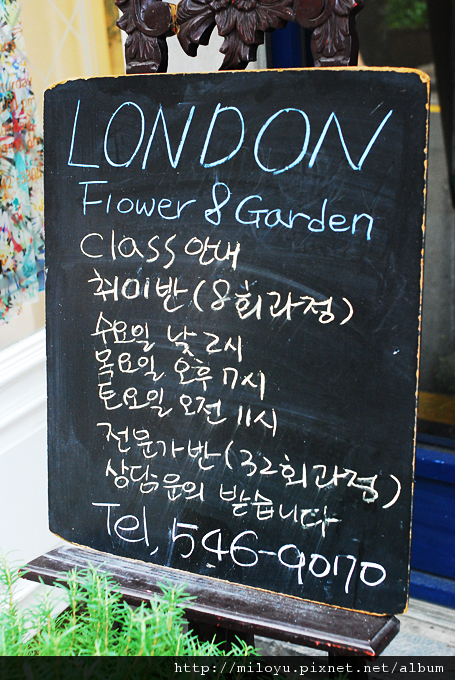 LONDON
Flower & Garden
Class 안내
취미반 (8회과정)
수요일 낮 2시
목요일 오후 7시
토요일 오전 11시
전문가반 (32회과정)
상담문의 받습니다
Tel, 546-9070
http://miloyu.pixnet.net/album